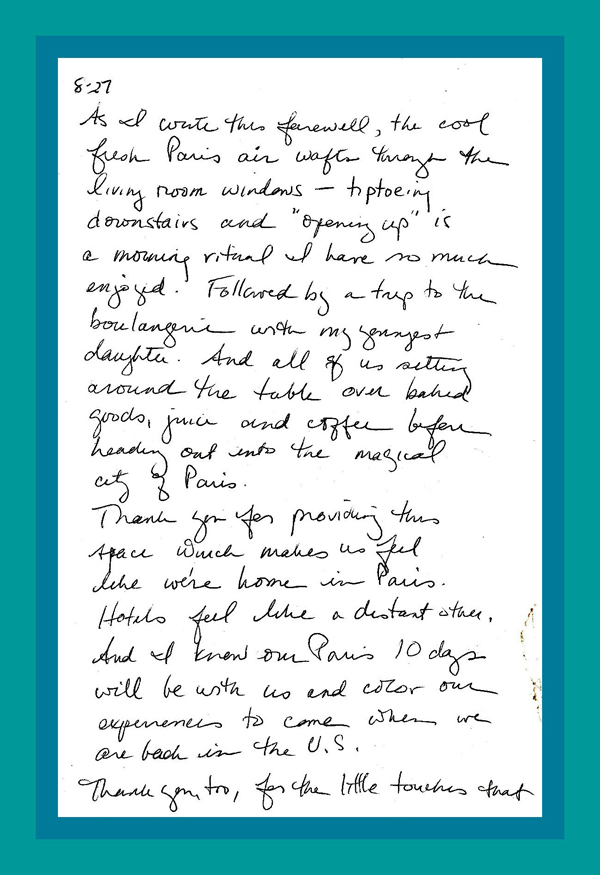 8-27
As I write this farewell, the cool
fresh Paris air wafts through the
living room windows — tiptoeing
downstairs and "opening up" is
a morning ritual I have so much
enjoyed. Followed by a trip to the
boulangerie with my youngest
daughter. And all of us sitting
around the table over baked
goods, juice and coffee before
heading out into the magical
city of Paris.
Thank you for providing this
space which makes us feel
like we're home in Paris.
Hotels feel like a distant other.
And I know our Paris 10 days
will be with us and color our
experiences to come when we
are back in the U.S.
Thank you, too, for the little touches that